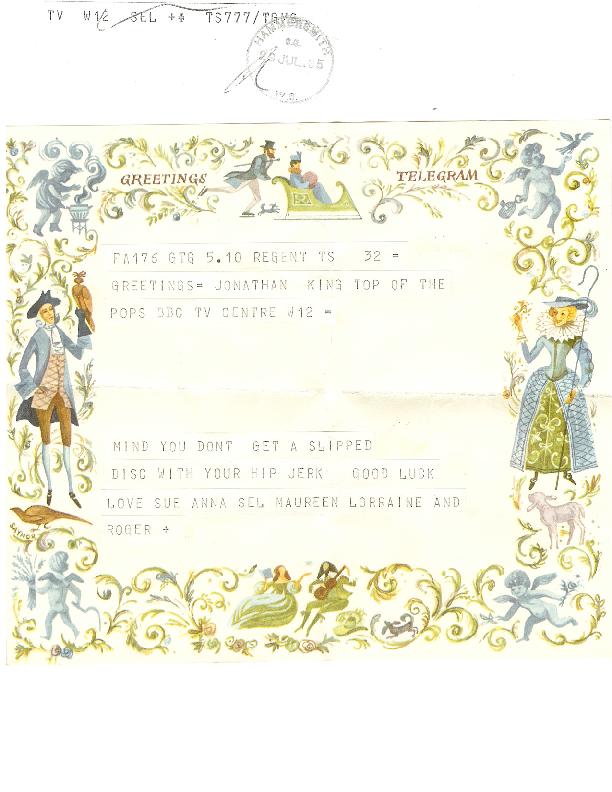 TV W12 SEL ++ TS777/TGMS
HAMMERSMITH
JUL 65
W.6.
GREETINGS TELEGRAM
FA176 GTG 5.10 REGENT TS 32 =
GREETINGS= JONATHAN KING TOP OF THE
POPS BBC TV CENTRE W12 =
MIND YOU DONT GET A SLIPPED
DISC WITH YOUR HIP JERK GOOD LUCK
LOVE SUE ANNA SEL MAUREEN LORRAINE AND
ROGER +